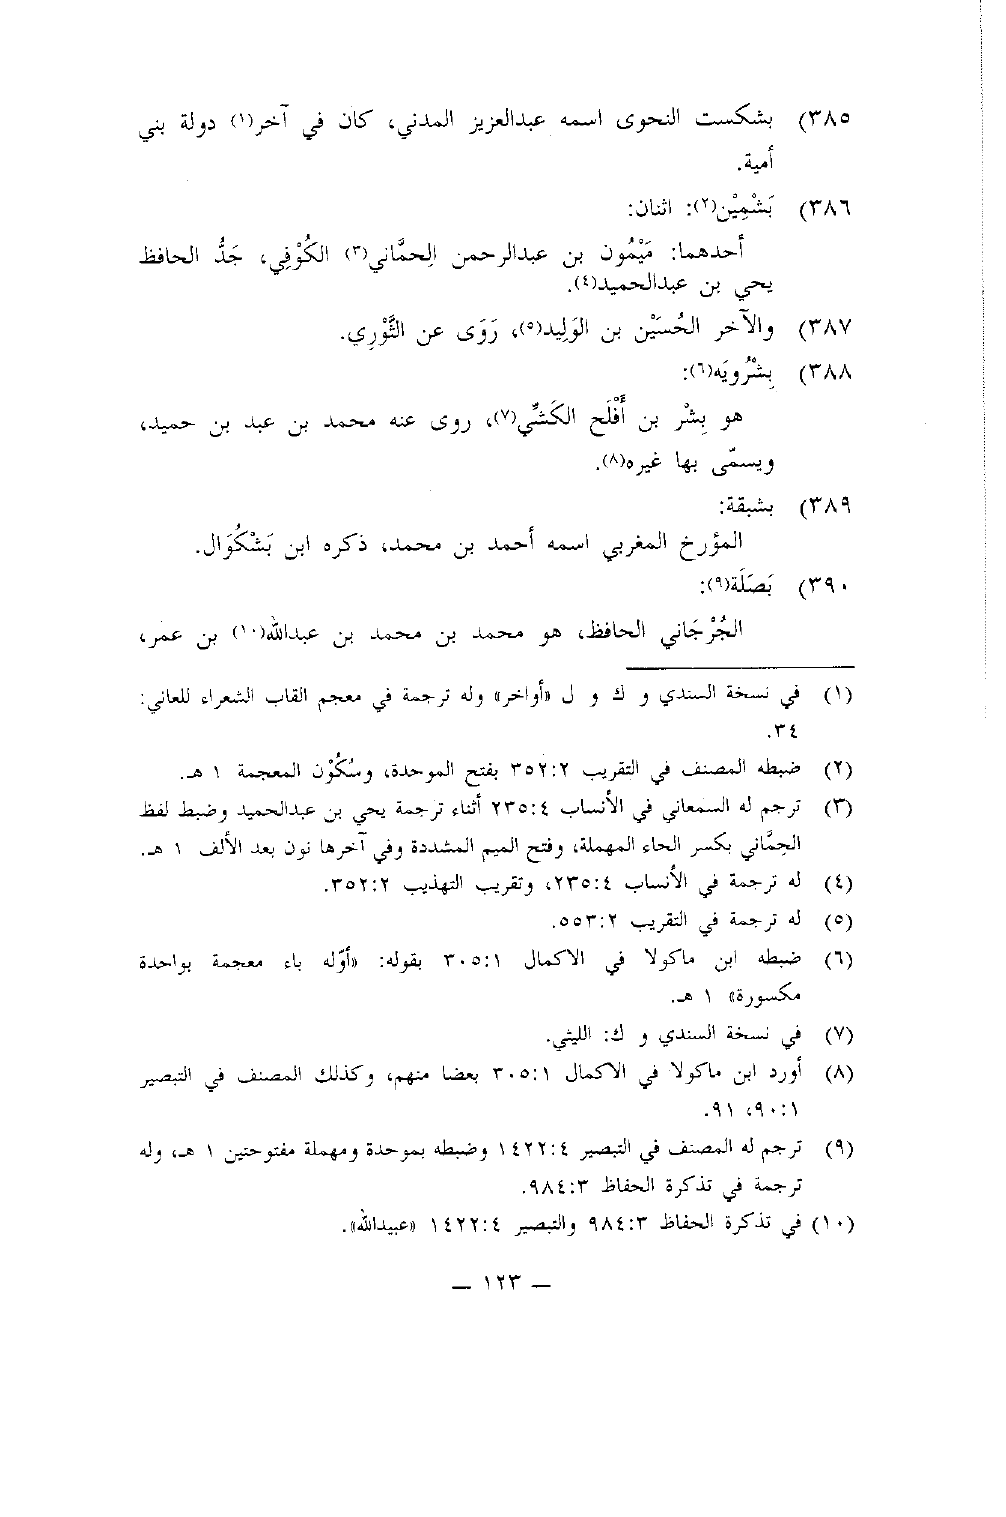 ٣٨٥) بشكست النحوى اسمه عبدالعزيز المدني، كان في آخر(١) دولة بني
أمية.
٣٨٦) بَشْمِيْن(٢): اثنان:
أحدهما: مَيْمُون بن عبدالرحمن الِحمَّاني(٣) الكُوْفِي، جَدُّ الحافظ
يحي بن عبدالحميد(٤).
٣٨٧) والآخر الحُسَيْن بن الوَلِيد(٥)، رَوَى عن الثَّوْرِي.
٣٨٨) بِشْرُويَه(٦):
هو بِشْر بن أَفْلَح الكَشِّي(٧)، روى عنه محمد بن عبد بن حميد،
ويسمّى بها غيره(٨).
٣٨٩) بشبقة:
المؤرخ المغربي اسمه أحمد بن محمد، ذكره ابن بَشْكُوَال.
٣٩٠) بَصَلَة(٩):
الجُرْجَاني الحافظ، هو محمد بن محمد بن عبدالله(١٠) بن عمر،
(١) في نسخة السندي و ك و ل «أواخر» وله ترجمة في معجم القاب الشعراء للعاني:
٣٤.
(٢) ضبطه المصنف في التقريب ٣٥٢:٢ بفتح الموحدة، وسُكُوْن المعجمة ١ هـ.
(٣) ترجم له السمعاني في الأنساب ٢٣٥:٤ أثناء ترجمة يحي بن عبدالحميد وضبط لفظ
الحِمَّاني بكسر الحاء المهملة، وفتح الميم المشددة وفي آخرها نون بعد الألف ١ هـ.
(٤) له ترجمة في الأنساب ٢٣٥:٤، وتقريب التهذيب ٣٥٢:٢.
(٥) له ترجمة في التقريب ٥٥٣:٢.
(٦) ضبطه ابن ماكولا في الاكمال ٣٠٥:١ بقوله: «أوّله باء معجمة بواحدة
مكسورة» ١ هـ.
(٧) في نسخة السندي و ك: الليثي.
(٨) أورد ابن ماكولا في الاكمال ٣٠٥:١ بعضا منهم، وكذلك المصنف في التبصير
٩٠:١، ٩١.
(٩) ترجم له المصنف في التبصير ١٤٢٢:٤ وضبطه بموحدة ومهملة مفتوحتين ١ هـ، وله
ترجمة في تذكرة الحفاظ ٩٨٤:٣.
(١٠) في تذكرة الحفاظ ٩٨٤:٣ والتبصير ١٤٢٢:٤ «عبيدالله».
— ١٢٣ —